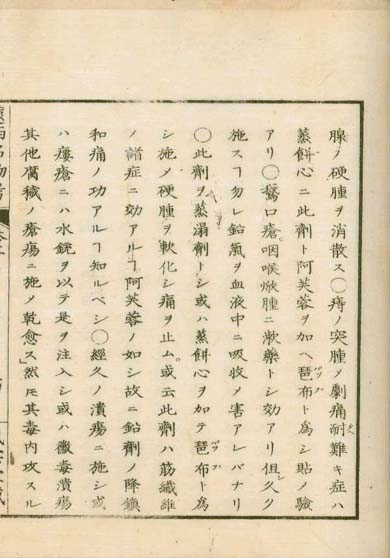 腺ノ硬腫ヲ消散ス○痔ノ突腫〆劇痛耐難キ症ハ
蒸餅心ニ此劑ト阿芙蓉ヲ加ヘ琶布ト為シ貼ノ驗
アリ○鵞口瘡咽喉焮腫ニ漱藥トシ効アリ但シ久ク
施スヿ勿レ鉛氣ヲ血液中ニ吸收〆害アレバナリ
○此劑ヲ蒸溻劑トシ或ハ蒸餅心ヲ加テ琶布ト為
シ施〆硬腫ヲ軟化シ痛ヲ止ム。或云此劑ハ筋纖維
ノ諸症ニ効アルヿ阿芙蓉ノ如シ故ニ鉛劑ノ降鎮
和痛ノ功アルヿ知ルベシ○經久ノ潰瘍ニ施シ或
ハ瘻瘡ニハ水銃ヲ以テ是ヲ注入シ或ハ黴毒潰瘍
其他腐穢ノ瘡瘍ニ施〆乾愈ス」然𪜈其毒内攻スル